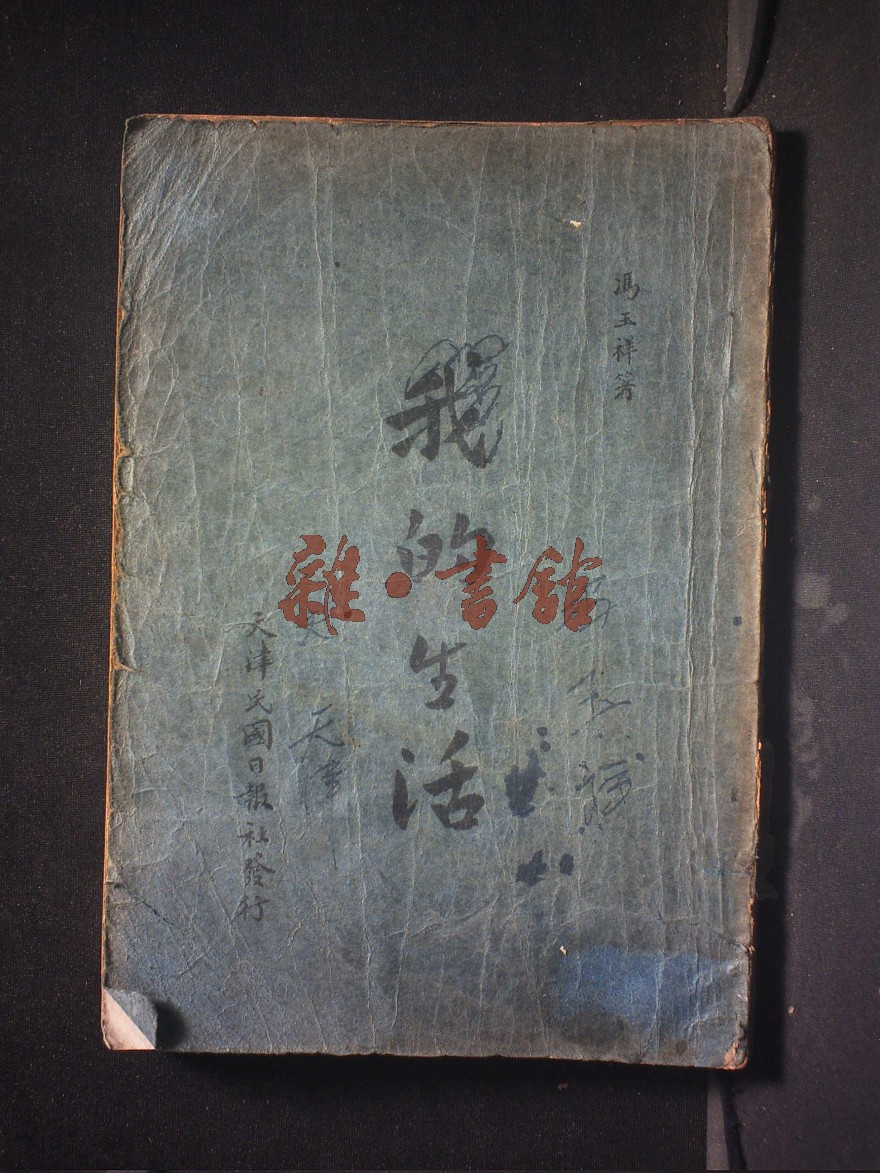 馮玉祥著
我的生活
天津民國日報社發行
天津
雜·書館